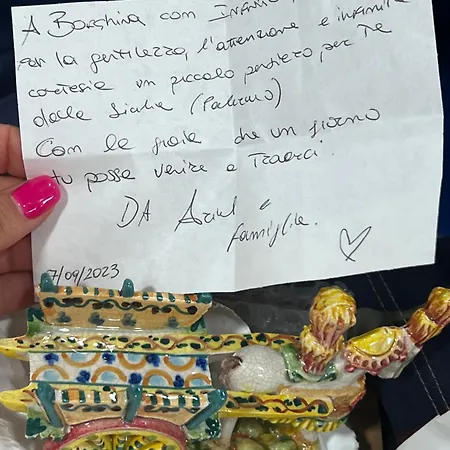 A Borghina com INFINITA
per la gentilezza, l'attenzione e infinita
cortesia un piccolo pensiero per Te
dalla Sicilia (Palermo)
Com la gioia che un giorno
tu possa venire a Trovarci.
DA Ariel e
famiglia.
7/09/2023